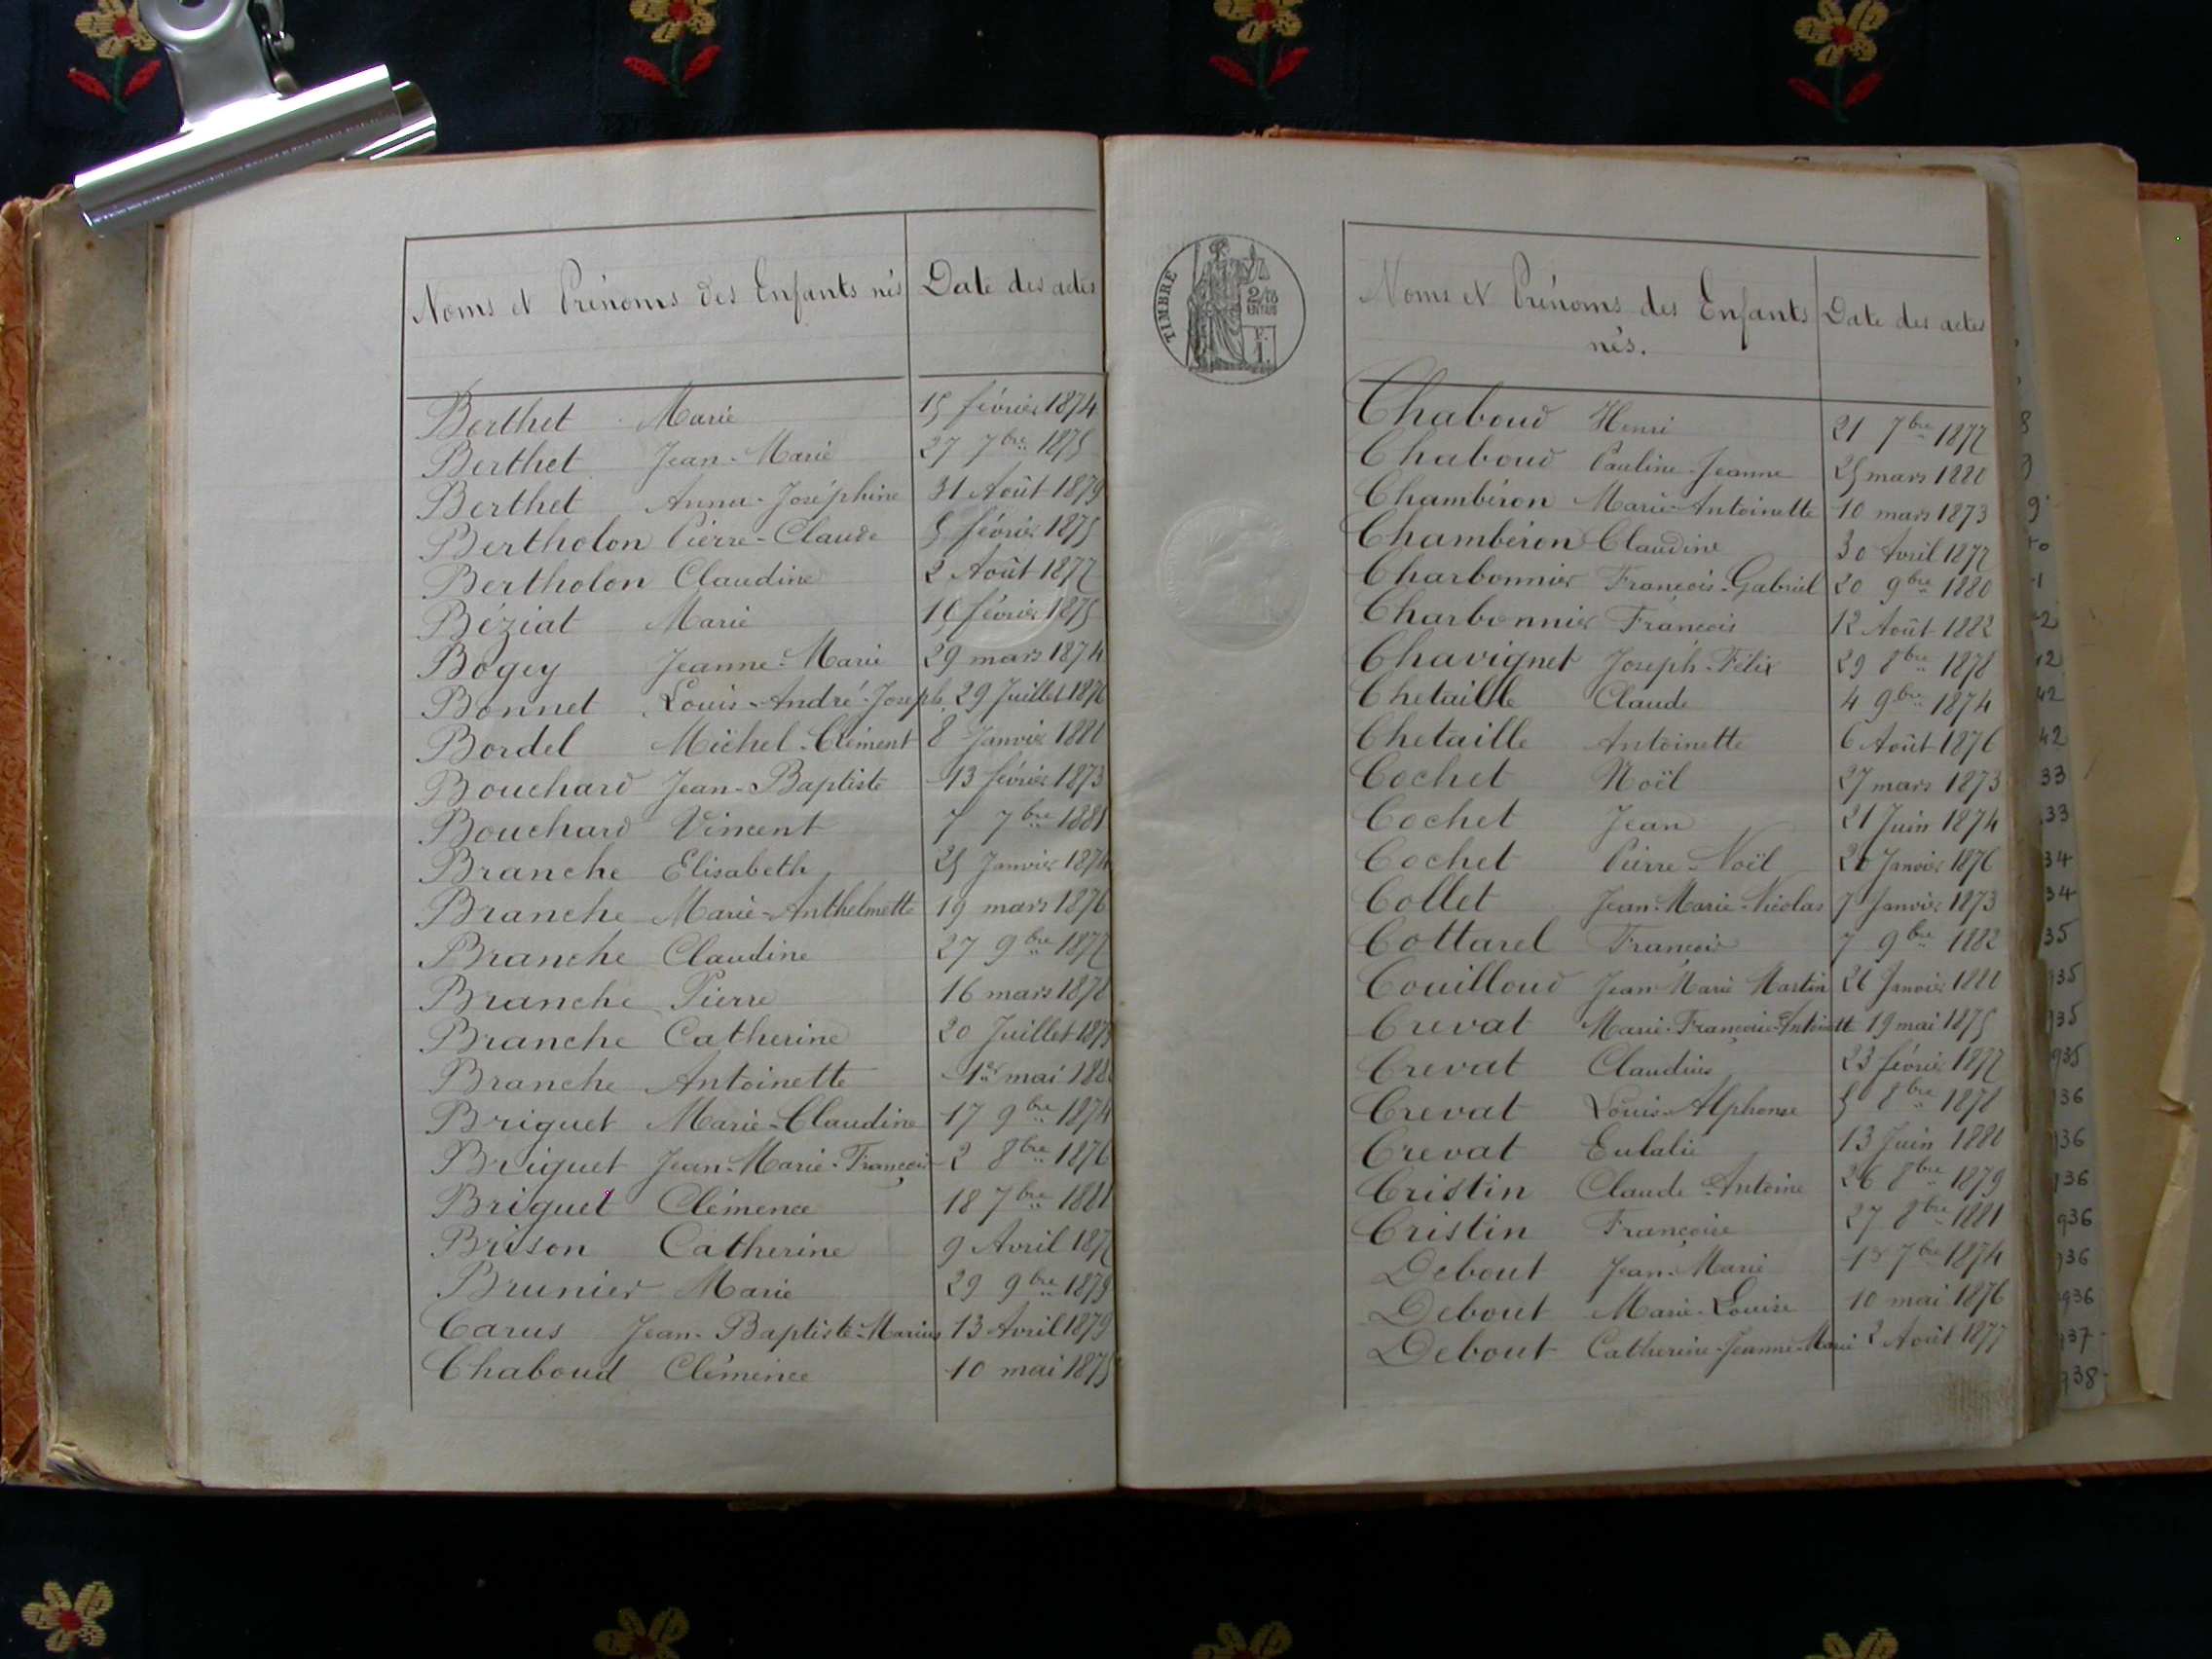 Noms et Prénoms des Enfants nés Date des actes
Berthet Marie 15 février 1874
Berthet Jean-Marie 27 7bre 1875
Berthet Anna-Joséphine 31 Août 1879
Bertholon Pierre-Claude 5 février 1875
Bertholon Claudine 2 Août 1877
Béziat Marie 15 février 1875
Bogey Jeanne-Marie 29 mars 1874
Bonnet Louis-André-Joseph 29 Juillet 1876
Bordel Michel-Clément 8 Janvier
Bouchard Jean-Baptiste 13 février 1873
Bouchard Vincent 7 7bre 1881
Branche Elisabeth 25 Janvier 1874
Branche Marie-Anthelmette 19 mars 1876
Branche Claudine 27 9bre 1877
Branche Pierre 16 mars 1878
Branche Catherine 20 Juillet
Branche Antoinette 1er mai
Briguet Marie-Claudine 17 9bre 1874
Briguet Jean-Marie-François 2 8bre 1876
Briguet Clémence 18 7bre 1881
Brison Catherine 9 Avril
Brunier Marie 29 9bre
Carus Jean-Baptiste-Marius 13 Avril 1879
Chaboud Clémence 10 mai 1875
TIMBRE
2/10
EN SUS
F.
1.
Noms et Prénoms des Enfants Date des actes
nés.
Chaboud Henri 21 7bre 1877
Chaboud Pauline-Jeanne 25 mars 1880
Chambéron Marie-Antoinette 10 mars 1873
Chambéron Claudine 30 Avril 1877
Charbonnier François-Gabriel 20 9bre 1880
Charbonnier François 12 Août 1882
Chavignet Joseph-Félix 29 8bre 1878
Chetaille Claude 4 9bre 1874
Chetaille Antoinette 6 Août 1876
Cochet Noël 27 mars 1873
Cochet Jean 21 Juin 1874
Cochet Pierre-Noël Janvier 1876
Collet Jean-Marie-Nicolas 7 Janvier 1873
Cottarel François 7 9bre 1882
Couilloud Jean-Marie Martin 26 Janvier 1880
Crevat Marie-Françoise-Antoinette 19 mai 1875
Crevat Claudius 23 février 1877
Crevat Louis-Alphonse 5 8bre 1878
Crevat Eulalie 13 Juin 1880
Cristin Claude-Antoine 26 8bre 1879
Cristin Françoise 27 8bre 1881
Debout Jean-Marie 7bre 1874
Debout Marie-Louise 10 mai 1876
Debout Catherine-Jeanne-Marie 2 Août 1877